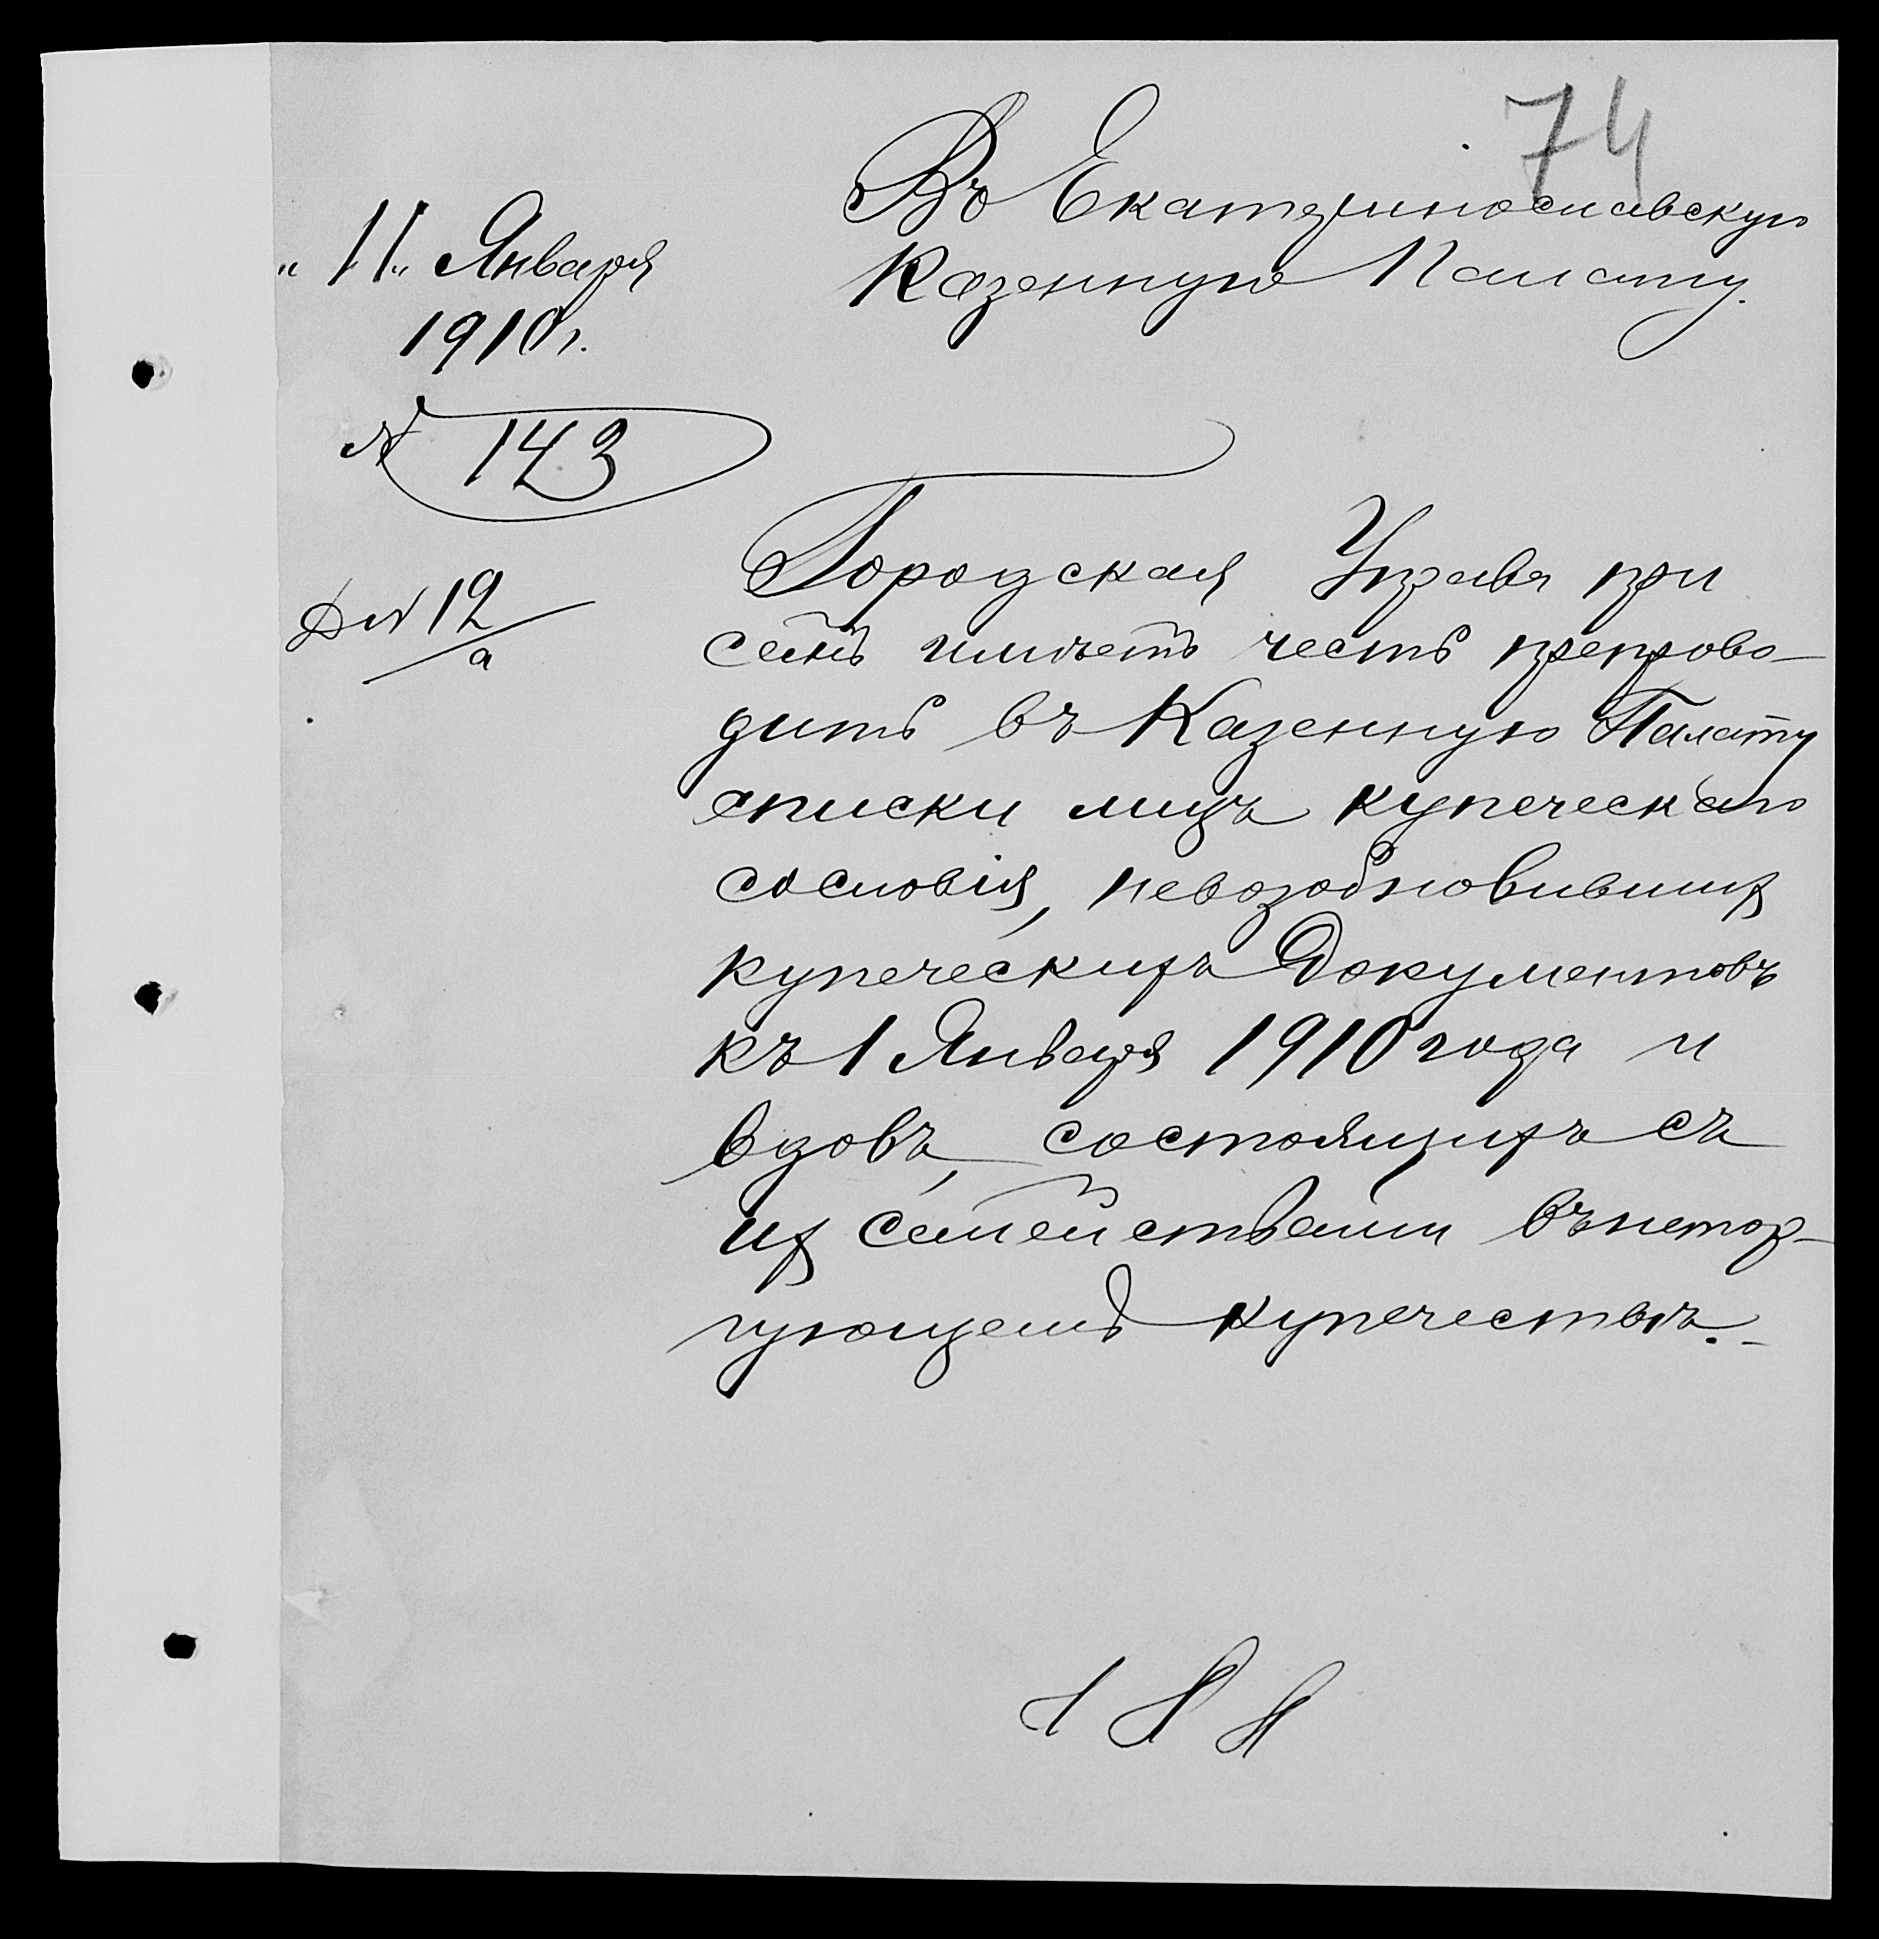 74
Въ Екатеринославскую
Казенную Палату.
"11" Января
1910 г.
№ 143
Д № 12/а
Городская Управа при
семъ имѣетъ честь препрово-
дить въ Казенную Палату
списки лицъ купеческаго
сословія, невозобновившихъ
купеческихъ документовъ
къ 1 Января 1910 года и
вдовъ, состоящихъ съ
ихъ семействами въ нетор-
гующемъ купечествѣ.-